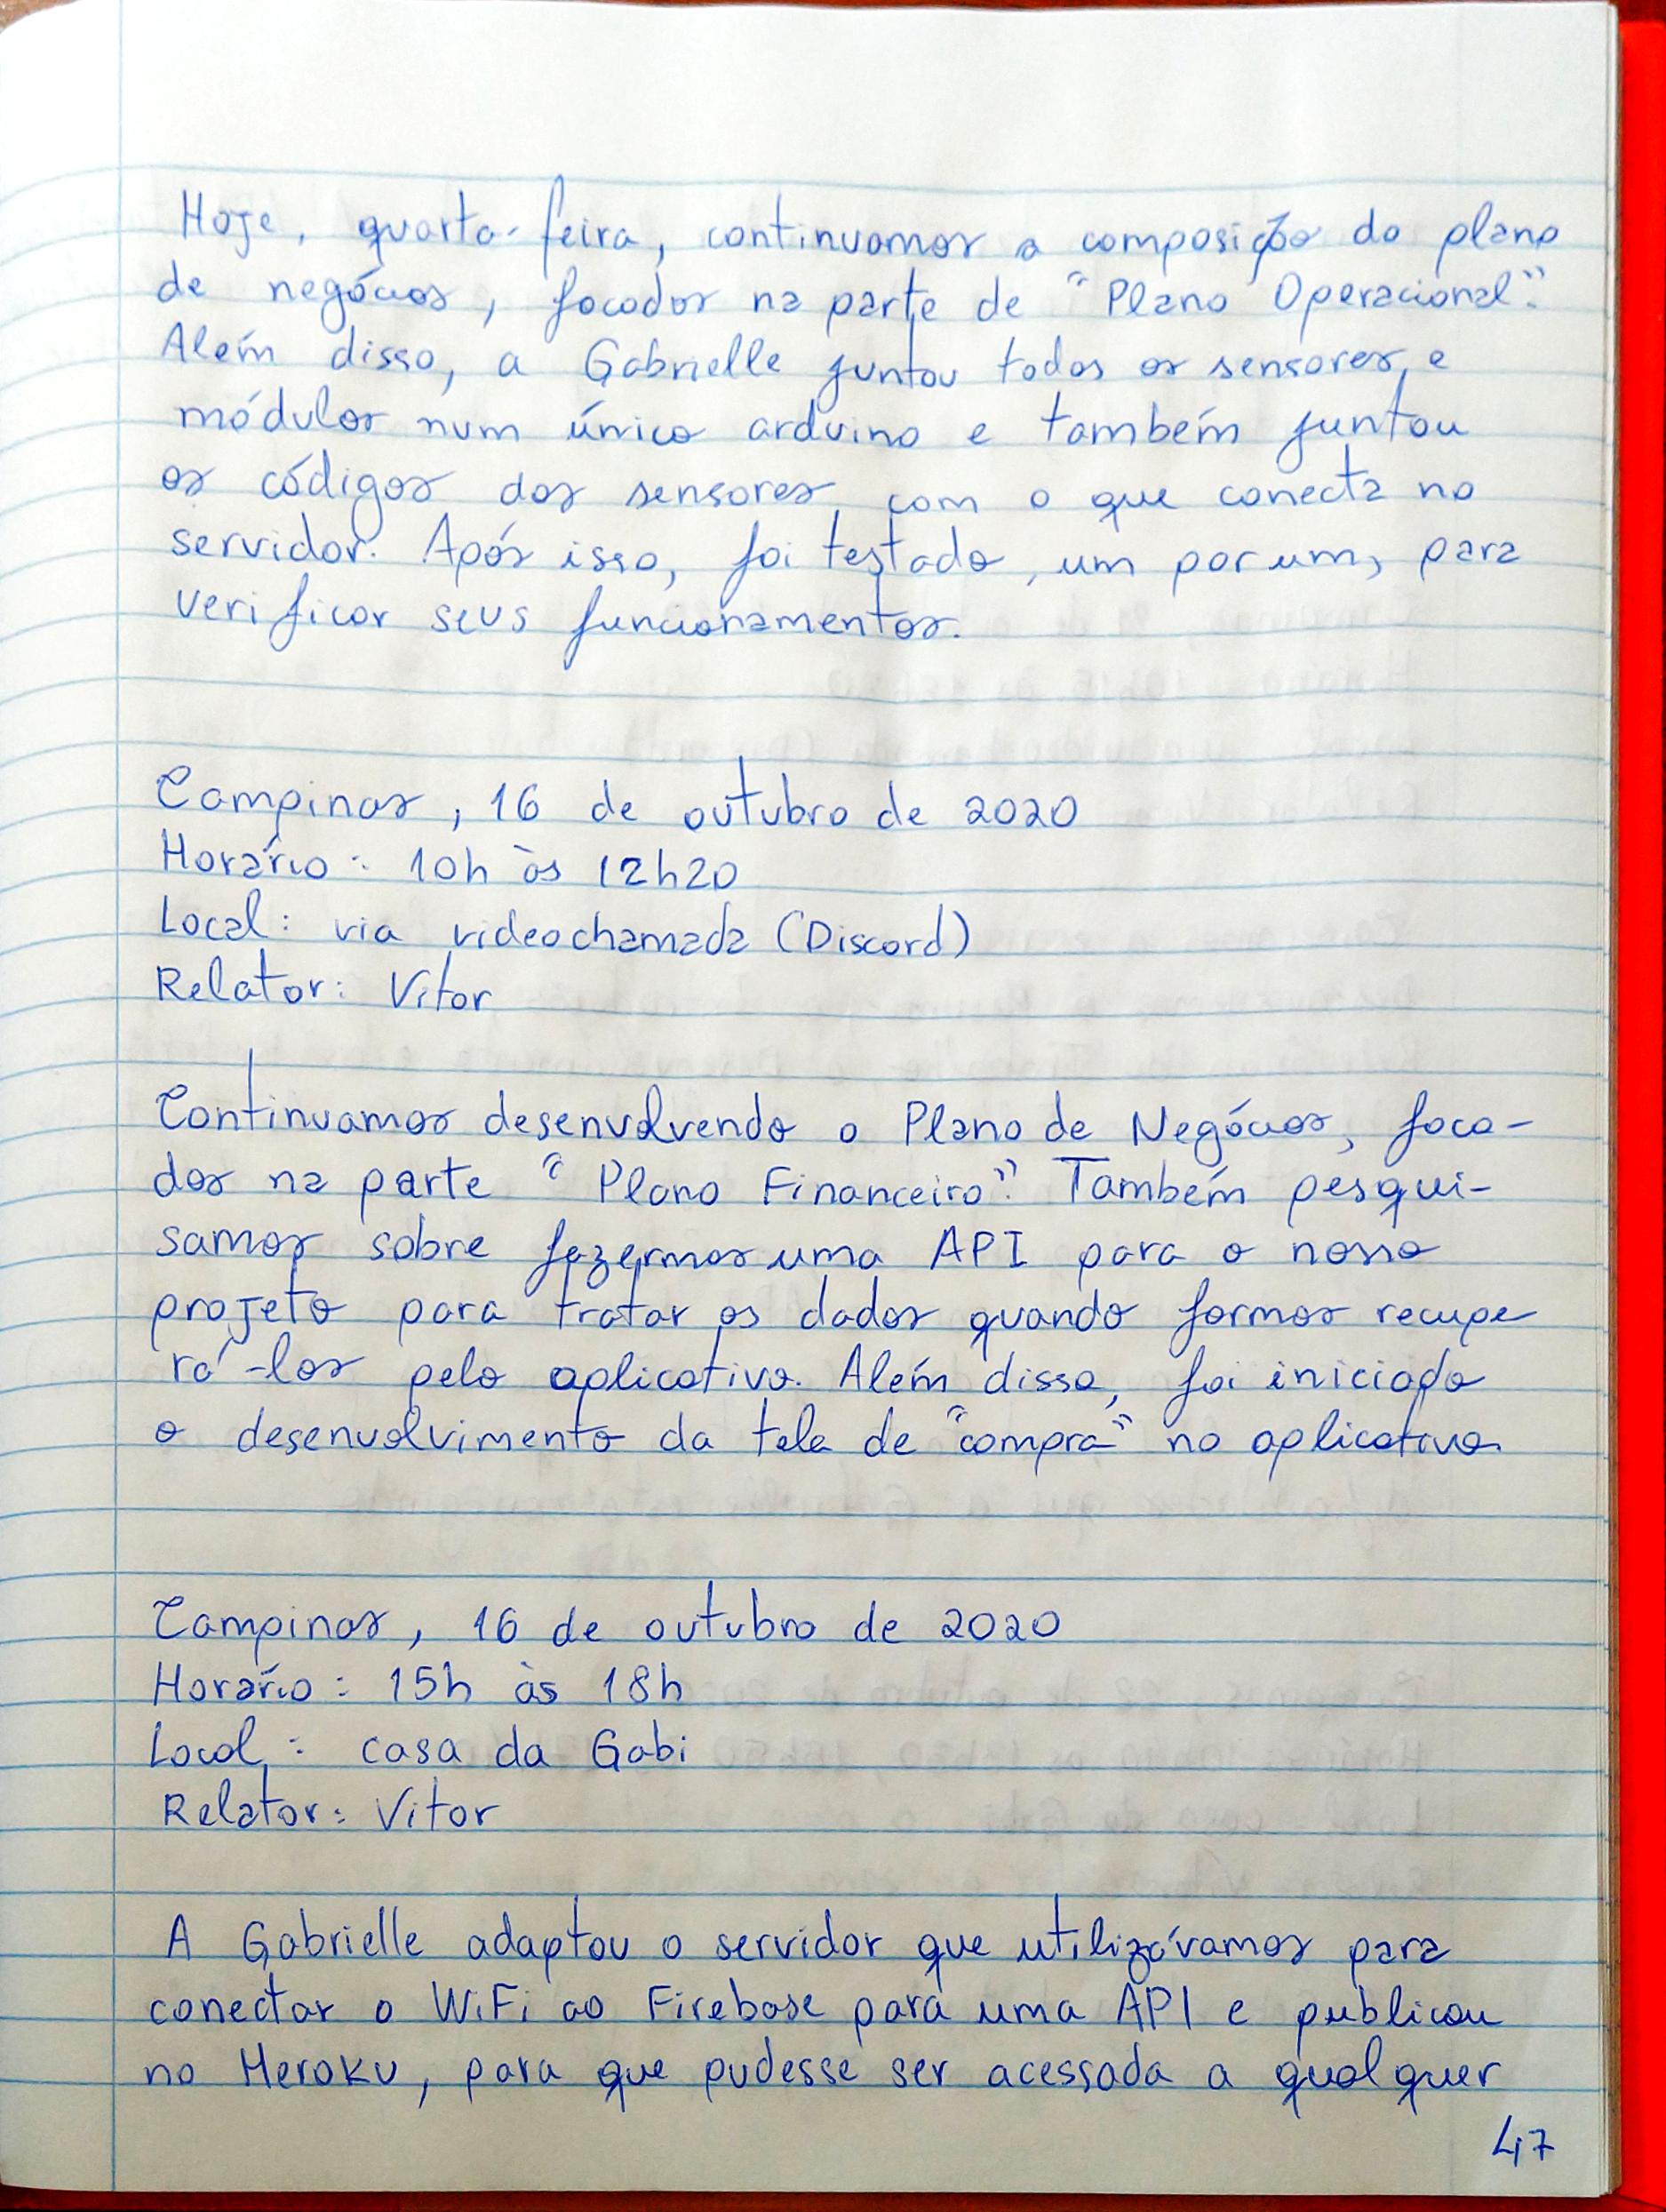 Hoje, quarta-feira, continuamos a composição do plano
de negócios, focados na parte de "Plano Operacional".
Além disso, a Gabrielle juntou todos os sensores e
módulos num único arduino e também juntou
os códigos dos sensores com o que conecta no
servidor. Após isso, foi testado, um por um, para
verificar seus funcionamentos.
Campinas, 16 de outubro de 2020
Horário: 10h às 12h20
Local: via videochamada (Discord)
Relator: Vitor
Continuamos desenvolvendo o Plano de Negócios, foca-
dos na parte "Plano Financeiro". Também pesqui-
samos sobre fazermos uma API para o nosso
projeto para tratar os dados quando formos recupe
rá-los pelo aplicativo. Além disso, foi iniciado
o desenvolvimento da tela de "compra" no aplicativo.
Campinas, 16 de outubro de 2020
Horário: 15h às 18h
Local: casa da Gabi
Relator: Vitor
A Gabrielle adaptou o servidor que utilizávamos para
conectar o WiFi ao Firebase para uma API e publicou
no Heroku, para que pudesse ser acessada a qualquer
47